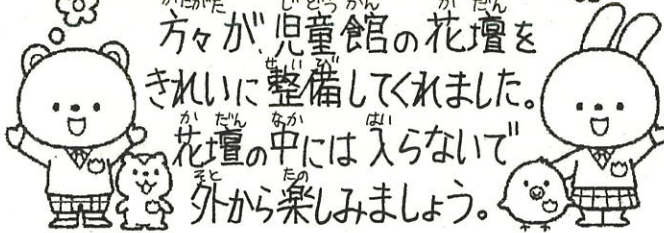 方々が、児童館の花壇を
きれいに整備してくれました。
花壇の中には入らないで
外から楽しみましょう。